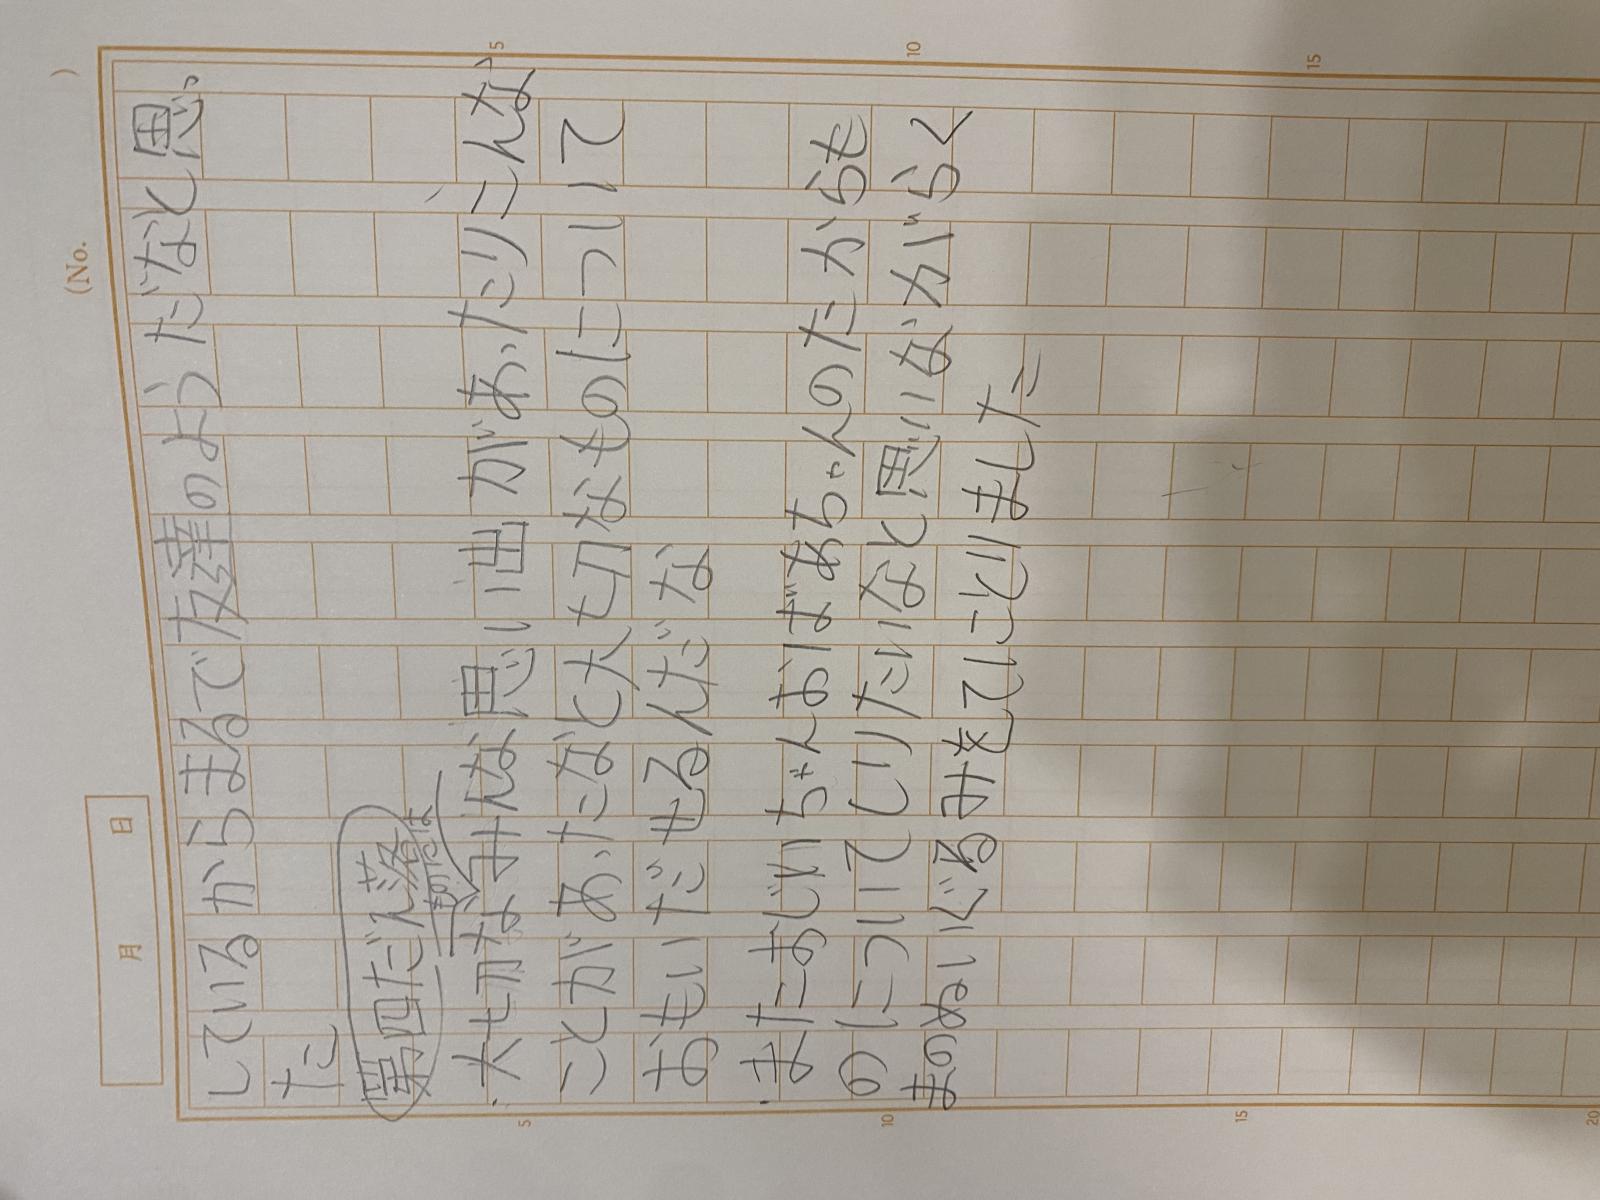 (No.　　)
月　日
しているからまるで友達のようだなと思っ
た
第四だん落
・大切なものにはみんな思い出があったりこんな
ことがあったなと大切なものについて
おもいだせるんだな
・またおじいちゃんおばあちゃんのたからも
のについてしりたいなと思いながらく
まのぬいぐるみをてにとりました
5
10
15
5
10
15
20